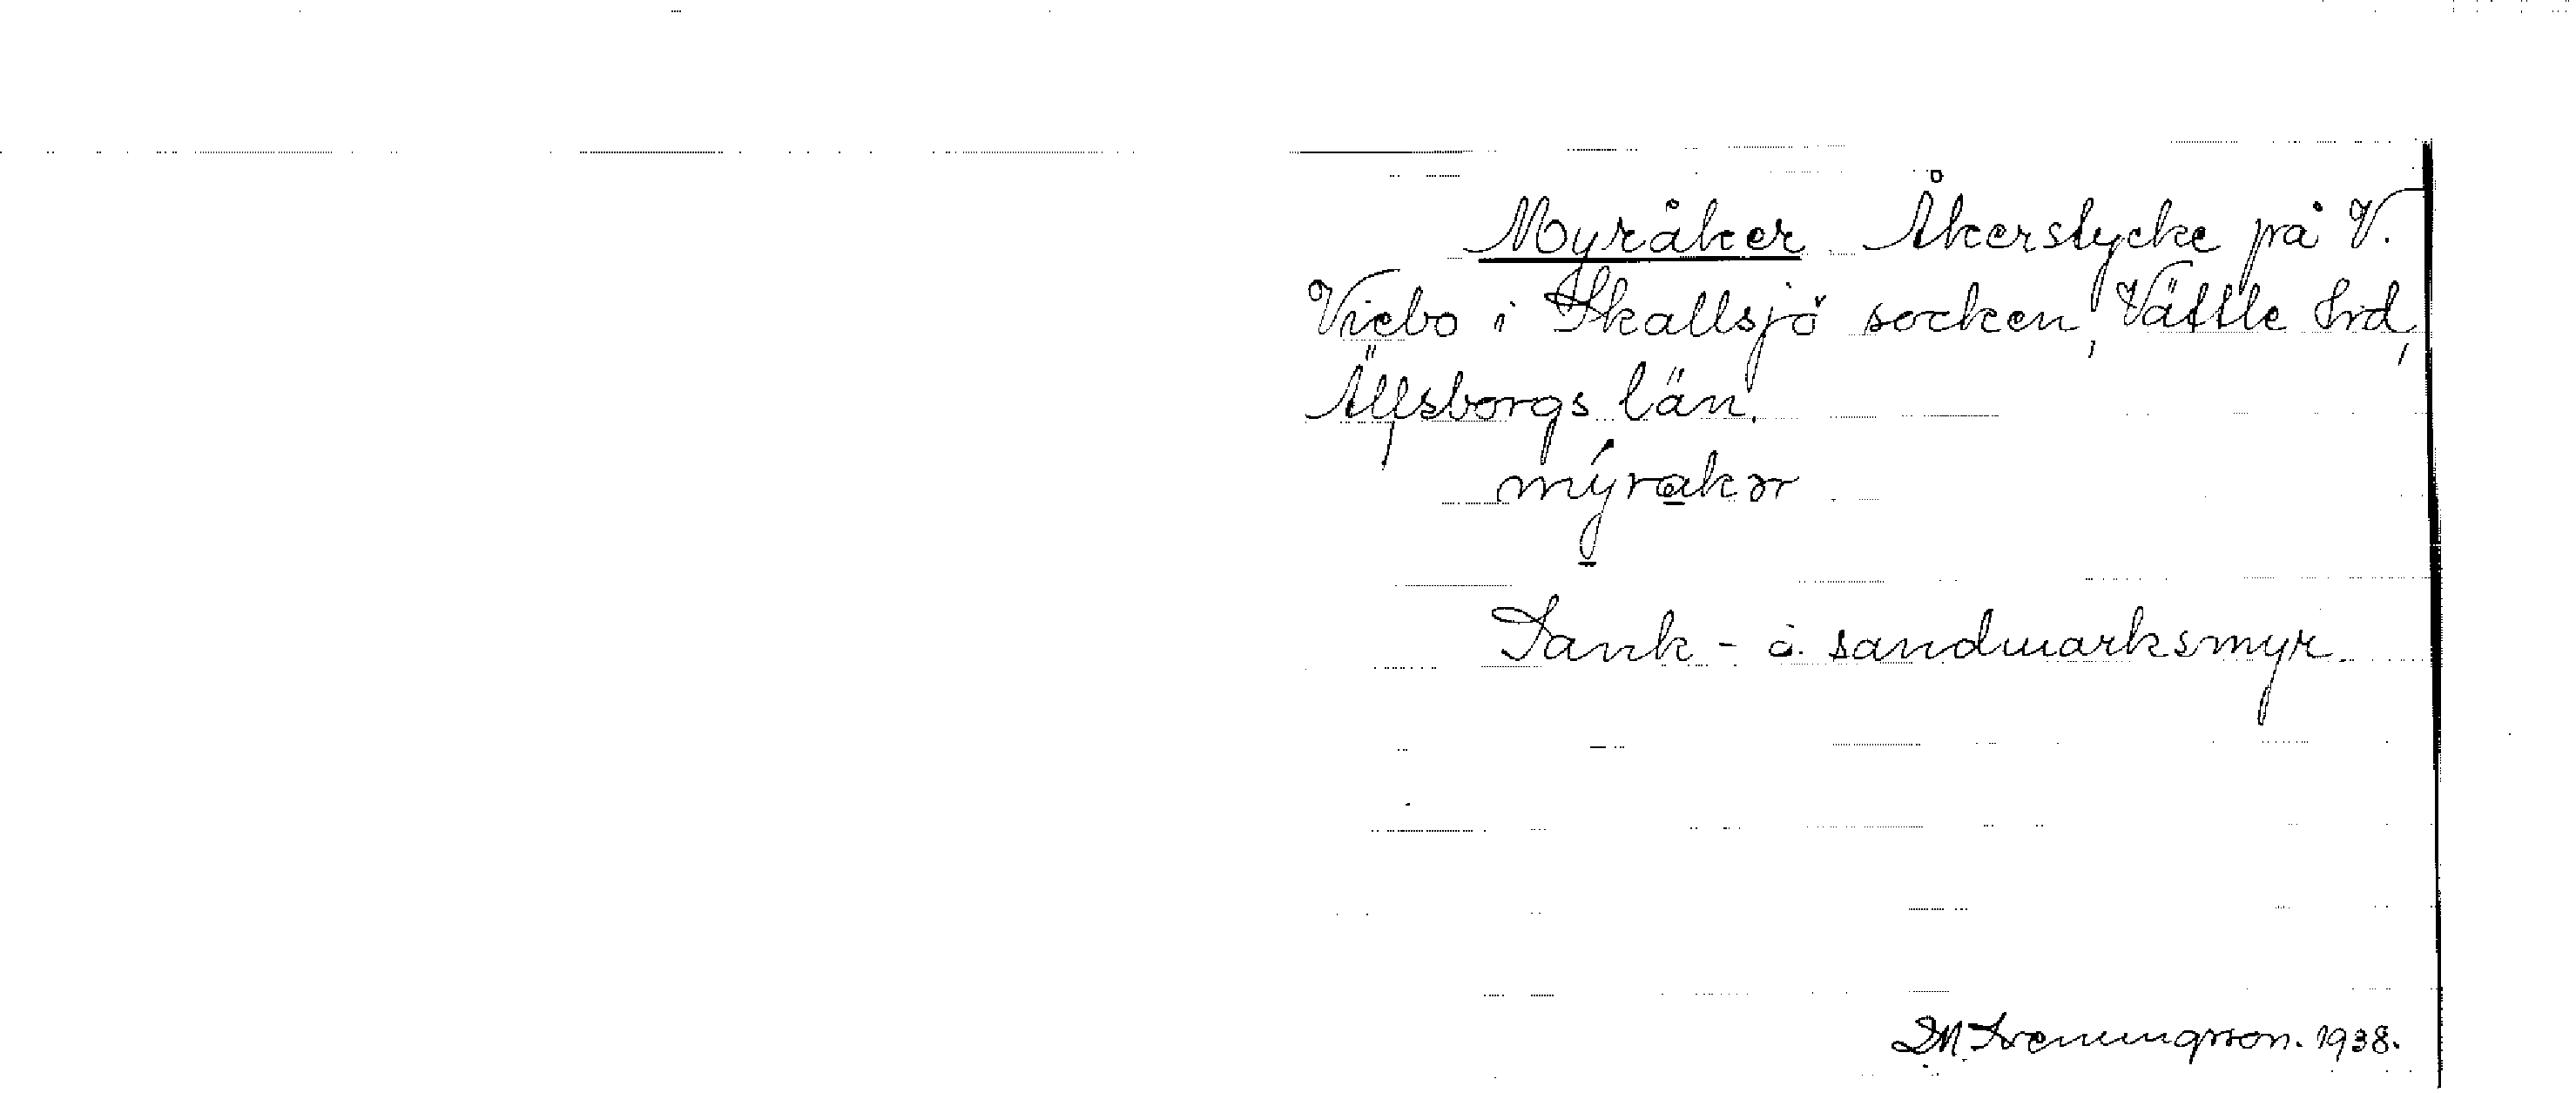 Myråker Åkerstycke på V.
Viebo i Skallsjö socken, Vättle hrd,
Älfsborgs län.
mýrakər
Sank- å sandmarksmyr
1938.